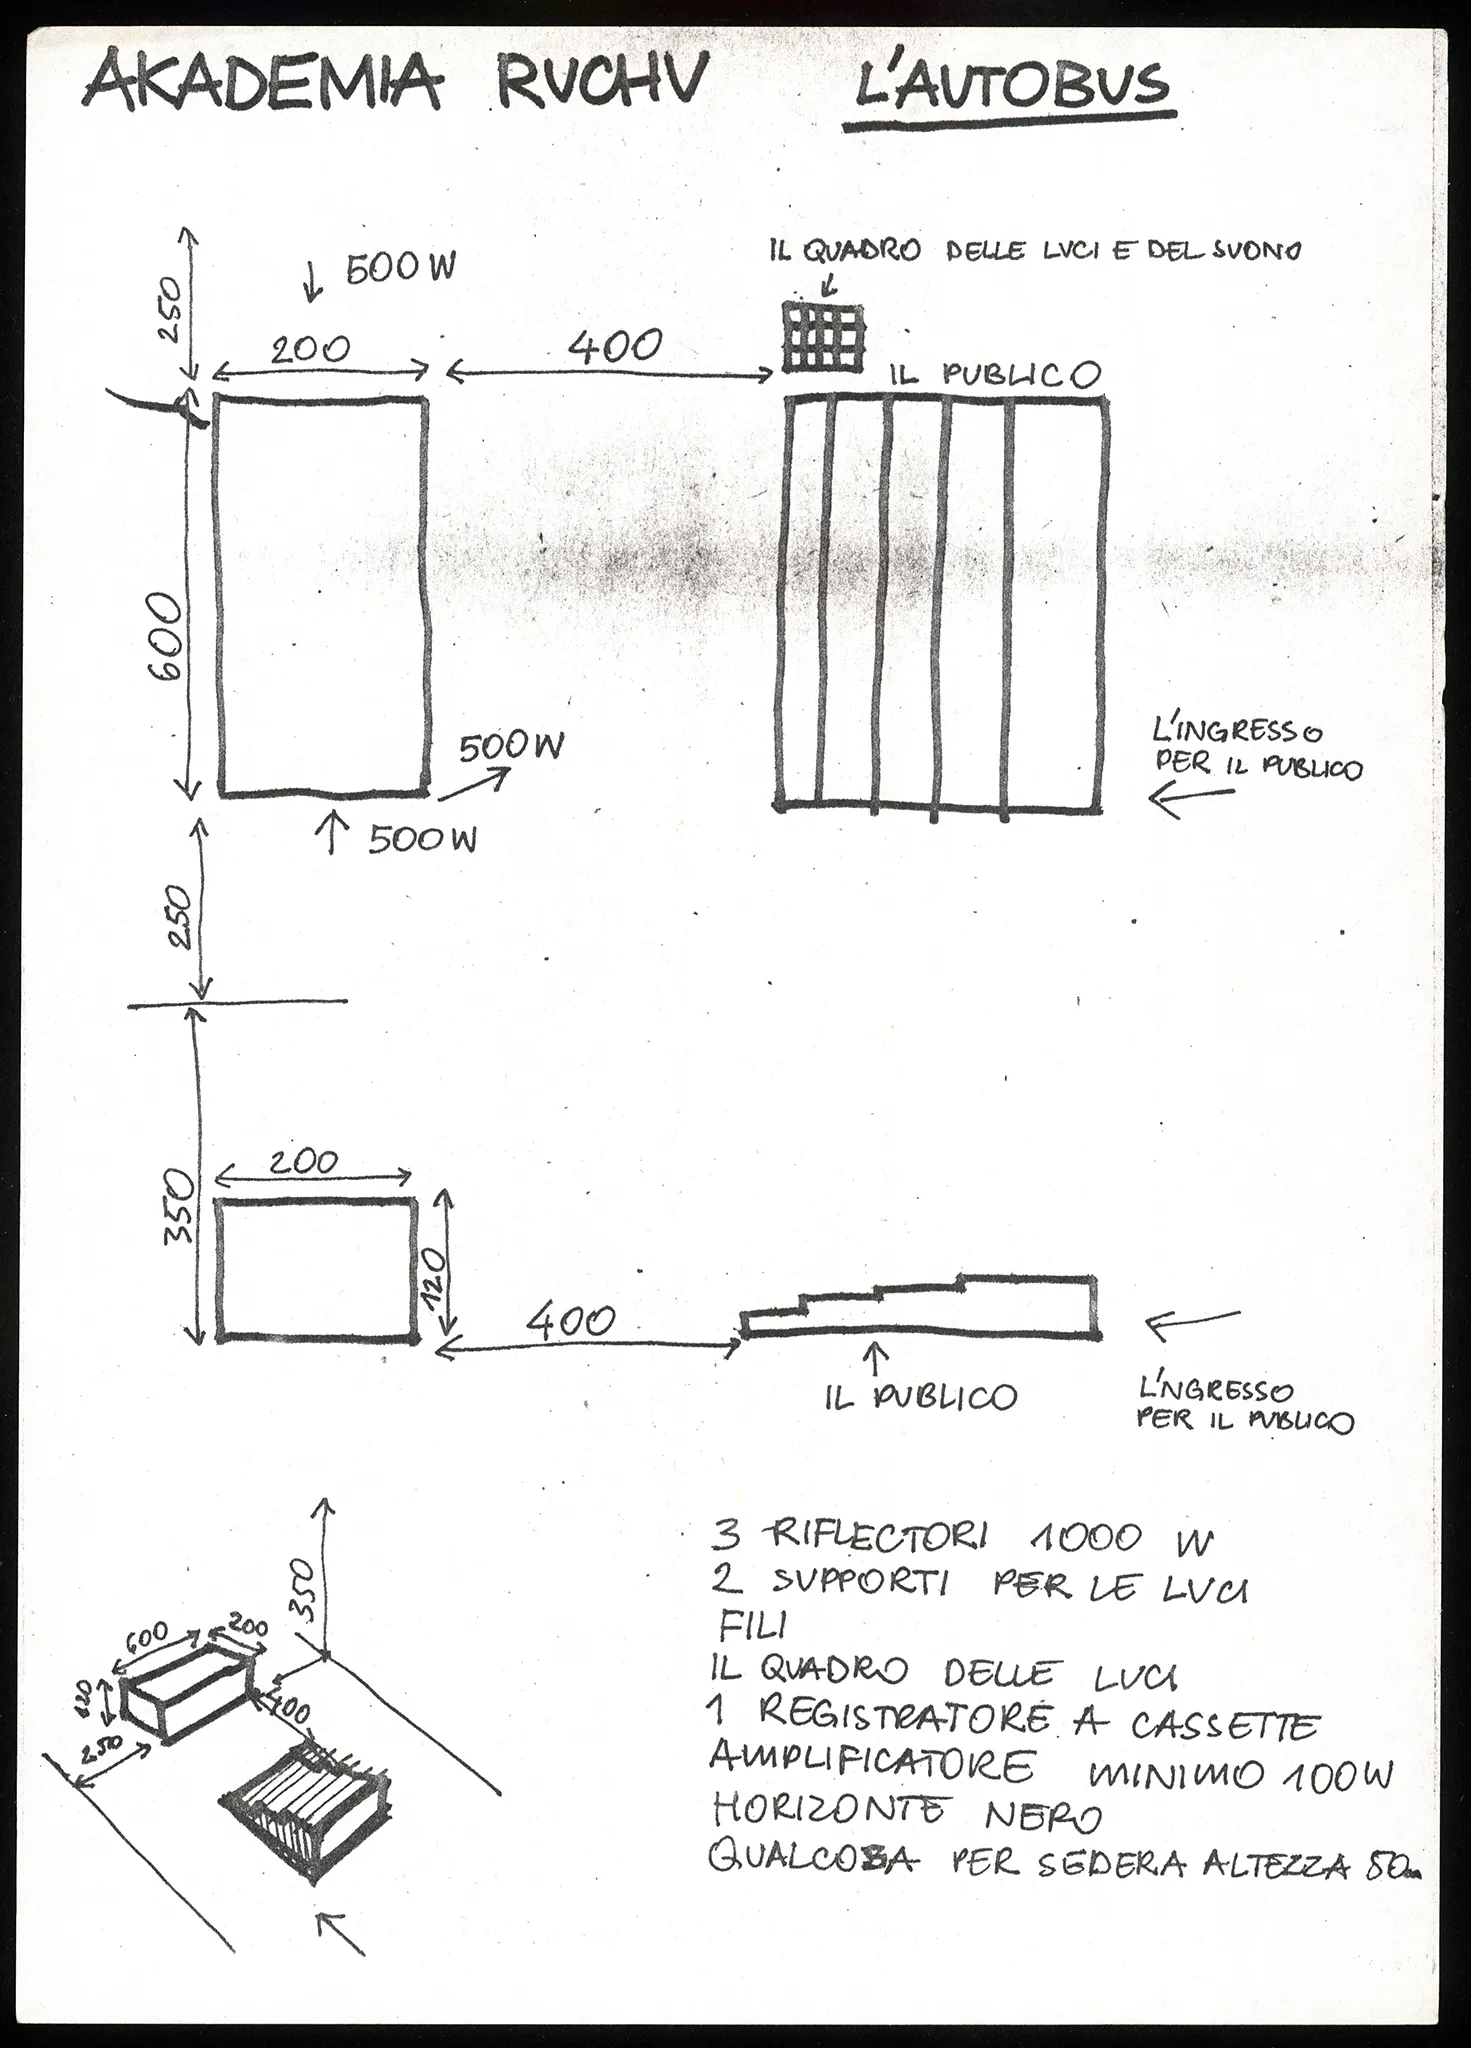 AKADEMIA RUCHU L'AUTOBUS
IL QUADRO DELLE LUCI E DEL SUONO
250
500W
200
400
IL PUBLICO
600
500W
L'INGRESSO
PER IL PUBLICO
500W
250
200
350
120
400
IL PUBLICO
L'NGRESSO
PER IL PUBLICO
350
600
200
120
400
250
3 RIFLECTORI 1000 W
2 SUPPORTI PER LE LUCI
FILI
IL QUADRO DELLE LUCI
1 REGISTRATORE A CASSETTE
AMPLIFICATORE MINIMO 100W
HORIZONTE NERO
QUALCOSA PER SEDERA ALTEZZA 50